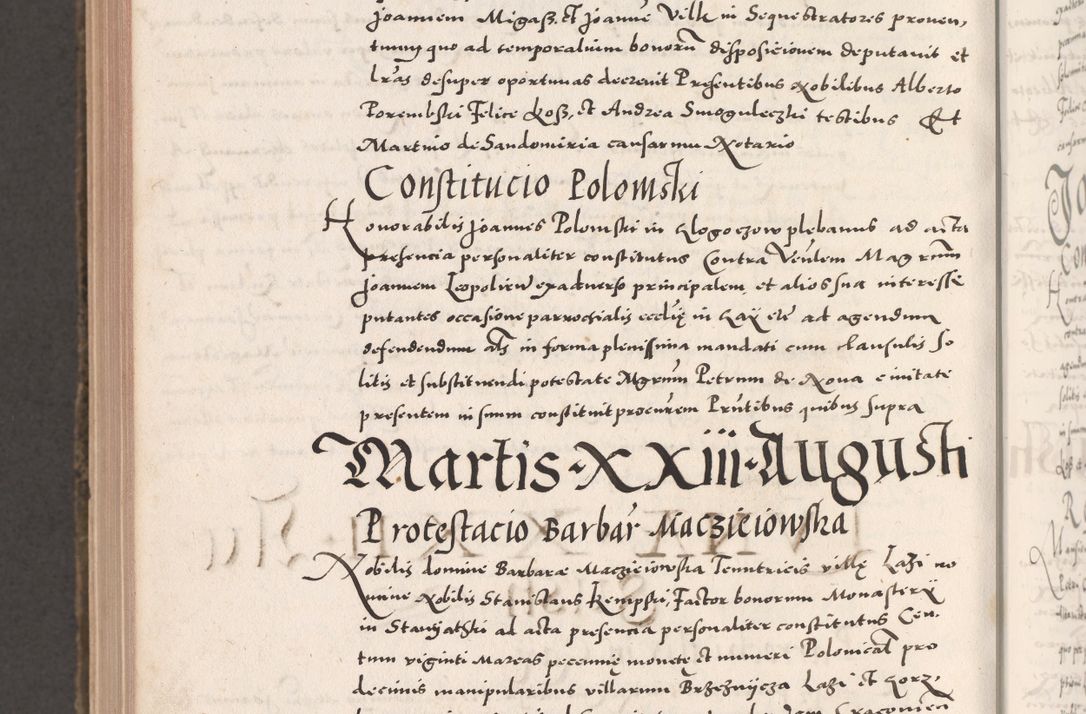 Joannem Migasz, et Joanne Velk in Sequestratores proven,
tuum quo ad temporalium bonorū disposicionem deputavit et
lras desuper oportunas decrevit Presentibus nobilibus Alberto
Porembski Felice Kosz, et Andrea Smoguleczki testibus Et
Martino de Sandomiria causarum Notario
Constitucio Polomski
Honorabilis Joannes Polomski in Klogoczow plebanus ad acta
presencia personaliter constitutus Contra Venlem Magrum
Joannem Leopolien exadverso principalem et alios sua interesse
putantes occasione parrochialis ecclię in Kaÿ etc ad agendum
defendendum als in forma plenissima mandati cum clausulis so
litis et substituendi potestate Mgrum Petrum de Nova civitate
presentem in suum constituit procurem Pntibus quibus supra
Martis XXiii Augusti
Protestacio Barbar Maczieiowska
Nobilis domine Barbarae Macziejowska Tenutricis villę Lazi no
mine Nobilis Stanislaus Kempski, Factor bonorum Monasterÿ
in Staniatski ad acta presencia personaliter constitutus Cen,
tum viginti Marcas pecunię monetę et numeri Polonical pro
decimis manipularibus villarum Brzeznÿcza Lazi et